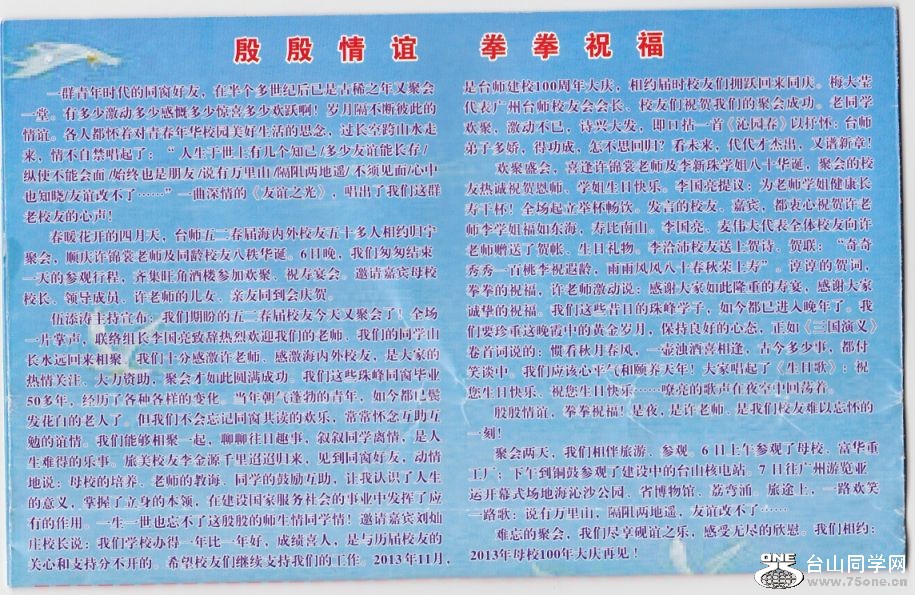 殷殷情谊 拳拳祝福
一群青年时代的同窗好友，在半个多世纪后已是古稀之年又聚会
一堂。有多少激动多少感慨多少惊喜多少欢跃啊！岁月隔不断彼此的
情谊。各人都怀着对青春年华校园美好生活的思念，过长空跨山水走
来，情不自禁唱起了：“人生于世上有几个知己/多少友谊能长存/
纵使不能会面/始终也是朋友/说有万里山/隔阻两地遥/不须见面/心中
也知晓/友谊改不了……”一曲深情的《友谊之光》，唱出了我们这群
老校友的心声！
春暖花开的四月天，台师五二春届海内外校友五十多人相约归宁
聚会，顺庆许锦裳老师及同龄校友八秩华诞。6日晚，我们匆匆结束
一天的参观行程，齐集旺角酒楼参加欢聚、祝寿宴会。邀请嘉宾母校
校长、领导成员、许老师的儿女、亲友同到会庆贺。
伍添涛主持宣布：我们期盼的五二春届校友今天又聚会了！全场
一片掌声，联络组长李国亮致辞热烈欢迎我们的老师、我们的同学山
长水远回来相聚。我们十分感激许老师、感激海内外校友，是大家的
热情关注、大力资助，聚会才如此圆满成功。我们这些珠峰同窗毕业
50多年，经历了各种各样的变化。当年朝气蓬勃的青年，如今都已鬓
发花白的老人了。但我们不会忘记同窗共读的欢乐，常常怀念互助互
勉的谊情。我们能够相聚一起，聊聊往日趣事，叙叙同学离情，是人
生难得的乐事。旅美校友李金源千里迢迢归来，见到同窗好友，动情
地说：母校的培养、老师的教海、同学的鼓励互助，让我认识了人生
的意义，掌握了立身的本领，在建设国家服务社会的事业中发挥了应
有的作用。一生一世也忘不了这殷殷的师生情同学情！邀请嘉宾刘灿
庄校长说：我们学校办得一年比一年好，成绩喜人，是与历届校友的
关心和支持分不开的。希望校友们继续支持我们的工作。2013年11月，
是台师建校100周年大庆，相约届时校友们拥跃回来同庆。梅大莹
代表广州台师校友会会长、校友们祝贺我们的聚会成功。老同学
欢聚，激动不已，诗兴大发，即口拈一首《沁园春》以抒怀：台师
弟子多娇，得功成，怎不思回归？看未来，代代才杰出，又谱新章！
欢聚盛会，喜逢许锦裳老师及李新珠学姐八十华诞，聚会的校
友热诚祝贺恩师、学姐生日快乐。李国亮提议：为老师学姐健康长
寿干杯！全场起立举杯畅饮。发言的校友、嘉宾，都衷心祝贺许老
师李学姐福如东海，寿比南山。李国亮、麦伟大代表全体校友向许
老师赠送了贺帐、生日礼物。李洽沛校友送上贺诗、贺联：“奇奇
秀秀一百桃李祝遐龄，雨雨风风八十春秋荣上寿”。谆谆的贺词，
拳拳的祝福，许老师激动说：感谢大家如此隆重的寿宴，感谢大家
诚挚的祝福。我们这些昔日的珠峰学子，如今都已进入晚年了。我
们要珍重这晚霞中的黄金岁月，保持良好的心态，正如《三国演义》
卷首词说的：惯看秋月春风，一壶浊酒喜相逢，古今多少事，都付
笑谈中。我们应该心平气和颐养天年！大家唱起了《生日歌》：祝
您生日快乐、祝您生日快乐……嘹亮的歌声在夜空中回荡着。
殷殷情谊，拳拳祝福！是夜，是许老师、是我们校友难以忘怀的
一刻！
聚会两天，我们相伴旅游、参观。6日上午参观了母校、富华重
工厂；下午到铜鼓参观了建设中的台山核电站。7日往广州游览亚
运开幕式场地海沁沙公园、省博物馆、荔弯涌。旅途上，一路欢笑
一路歌：说有万里山，隔阻两地遥，友谊改不了……
难忘的聚会，我们尽享砚谊之乐，感受无尽的欣慰。我们相约：
2013年母校100年大庆再见！
ONE 台山同学网
www.75one.cn